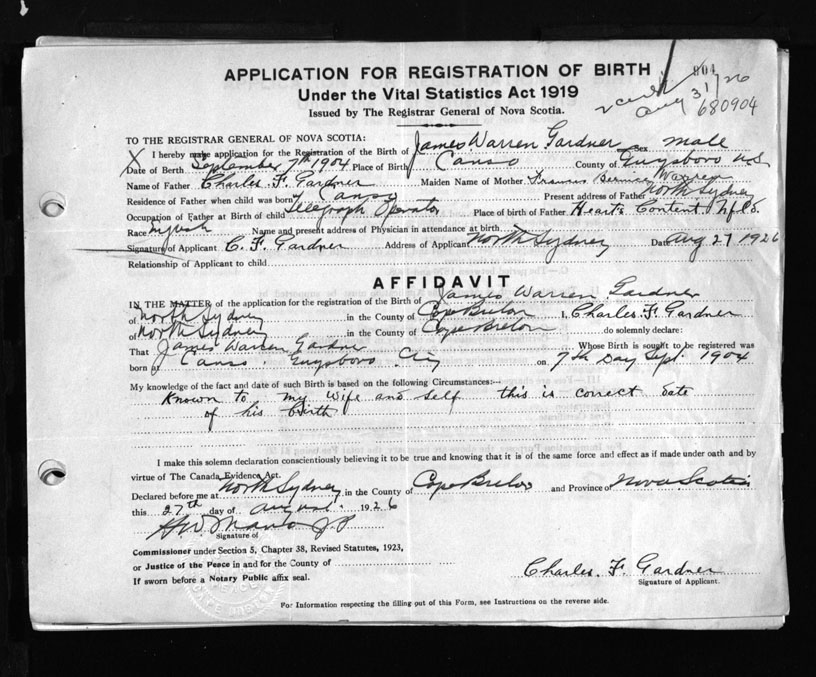 APPLICATION FOR REGISTRATION OF BIRTH
804
Under the Vital Statistics Act 1919
Aug 31/26
680904
Issued by The Registrar General of Nova Scotia.
TO THE REGISTRAR GENERAL OF NOVA SCOTIA:
X I hereby make application for the Registration of the Birth of James Warren Gardner Sex male
Date of Birth September 7th 1904 Place of Birth Canso County of Guysboro N.S
Name of Father Charles F. Gardner Maiden Name of Mother Frances Bernice Warren
Residence of Father when child was born Canso Present address of Father North Sydney
Occupation of Father at Birth of child Telegraph Operator Place of birth of Father Hearts Content Nfld.
Race English Name and present address of Physician in attendance at birth
Signature of Applicant C. F. Gardner Address of Applicant North Sydney Date Aug 27 1926
Relationship of Applicant to child
AFFIDAVIT
IN THE MATTER of the application for the registration of the Birth of James Warren Gardner
of North Sydney in the County of Cape Breton I, Charles F. Gardner
of North Sydney in the County of Cape Breton do solemnly declare:
That James Warren Gardner Whose Birth is sought to be registered was
born at Canso Guysboro Cty on 7th Day Sept. 1904
My knowledge of the fact and date of such Birth is based on the following Circumstances:--
Known to my wife and self this is correct date
of his birth
I make this solemn declaration conscientiously believing it to be true and knowing that it is of the same force and effect as if made under oath and by
virtue of The Canada Evidence Act.
Declared before me at North Sydney in the County of Cape Breton and Province of Nova Scotia
this 27th day of August 1926
J.P.
Signature of
Commissioner under Section 5, Chapter 38, Revised Statutes, 1923,
or Justice of the Peace in and for the County of
If sworn before a Notary Public affix seal.
Charles. F. Gardner
Signature of Applicant.
For Information respecting the filling out of this Form, see Instructions on the reverse side.